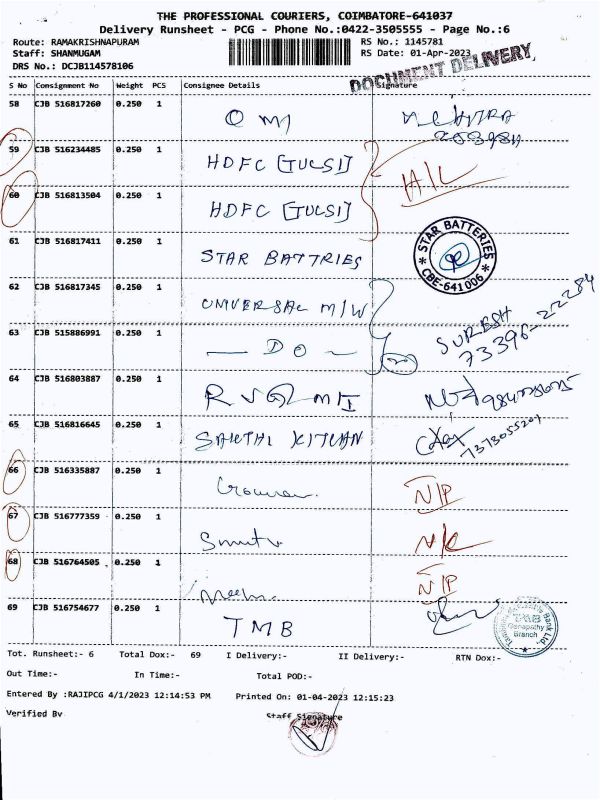 THE PROFESSIONAL COURIERS, COIMBATORE-641037
Delivery Runsheet - PCG - Phone No.:0422-3505555 - Page No.:6
Route: RAMAKRISHNAPURAM RS No.: 1145781
Staff: SHANMUGAM RS Date: 01-Apr-2023
DRS No.: DCJB114578106
DOCUMENT DELIVERY
S No Consignment No Weight PCS Consignee Details Signature
58 CJB 516817260 0.250 1
59 CJB 516234485 0.250 1 HDFC [TULSI]
A/L
60 CJB 516813504 0.250 1 HDFC [TULSI]
61 CJB 516817411 0.250 1 STAR BATTRIES
STAR BATTERIES
CBE-641006
62 CJB 516817345 0.250 1 UNIVERSAL M/W
63 CJB 515886991 0.250 1 — DO —
SURESH
73396-22284
64 CJB 516803887 0.250 1
65 CJB 516816645 0.250 1 SAKTHI KITCHAN
7373055201
66 CJB 516335887 0.250 1 N/P
67 CJB 516777359 0.250 1 N/K
68 CJB 516764505 0.250 1 N/P
69 CJB 516754677 0.250 1 TMB
TMB
Ganapathy
Branch
Tot. Runsheet:- 6 Total Dox:- 69 I Delivery:- II Delivery:- RTN Dox:-
Out Time:- In Time:- Total POD:-
Entered By :RAJIPCG 4/1/2023 12:14:53 PM Printed On: 01-04-2023 12:15:23
Verified By Staff Signature